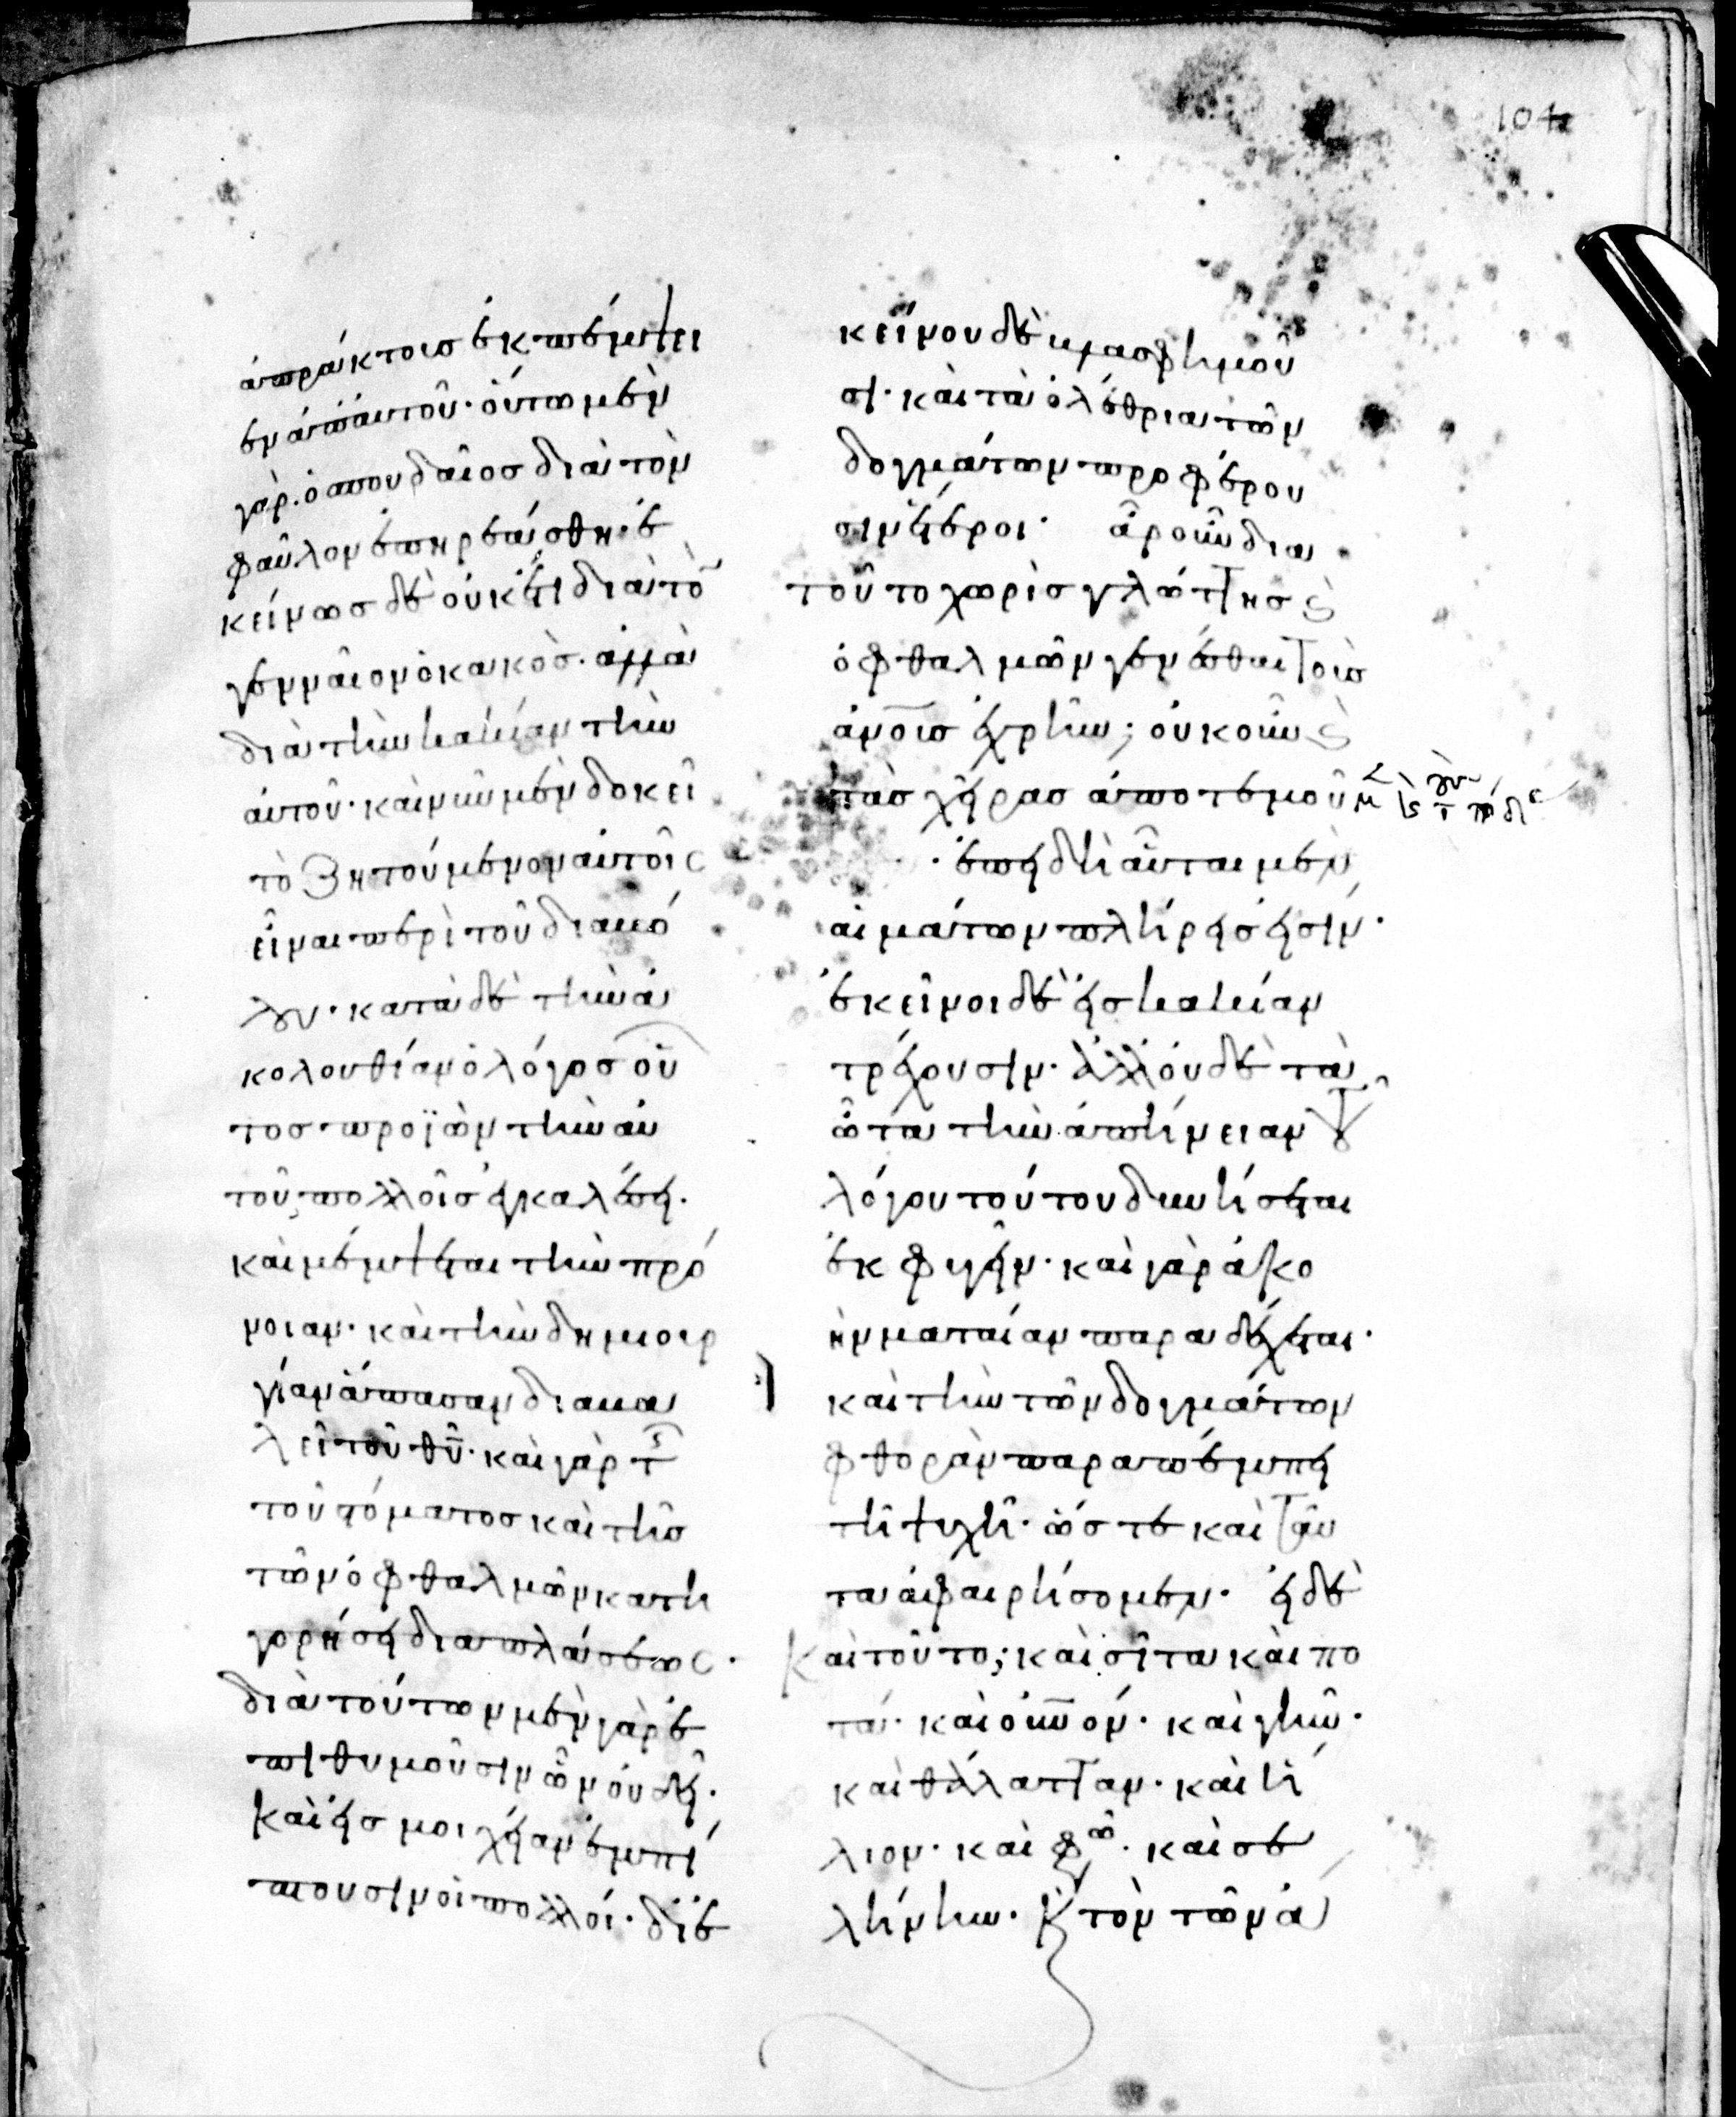 104
ἀπράκτοις ἐκπέμψει
εν ἀπ' αυτοῦ· ὁύτω μὲν
γὰρ· ὁ σπουδαῖος διὰ τὸν
φαῦλον ἐπηρεάσθη· ἐ
κείνως δὲ ὀυκέτι διὰ τὸ
γενναῖον ὁ κακὸς· ἀλλὰ
διὰ τὴν κακίαν τὴν
ἀυτοῦ· καὶ νῦν μὲν δοκεῖ
τὸ ζητούμενον ἀυτοῖς
εἶναι περὶ τοῦ διακό
λου· κατὰ δὲ τὴν ἀ
κολουθίαν ὁ λόγος οὗ
τος προϊὼν τὴν ἀυ
τοῦ πολλοῖς ἐγκαλέσει·
καὶ μέμψεται τὴν πρό
νοιαν· καὶ τὴν δημιουρ
γίαν ἅπασαν διακα
λεῖ τοῦ θῦ· καὶ γὰρ τ
τοῦ στόματος καὶ τῆς
τῶν ὀφθαλμῶν κατη
γορήσει διαπλάσεως·
διὰ τούτων μὲν γὰρ ἐ
πιθυμοῦσιν ὧν ὀυ δεῖ·
καὶ εἰς μοιχείαν ἐμπί
πτουσιν ὁι πολλοί· δι' ἐ
κείνου δὲ βλασφημοῦ
σι· καὶ τὰ ὀλέθρια τῶν
δογμάτων προφέρου
σιν ἕτεροι· ἆρ' οὖν δια
τοῦτο χωρὶς γλώττης ϗ
ὀφθαλμῶν γενέσθαι τοῖς
ἀνοις ἐχρῆν; οὐκοῦν ϗ
τὰς χεῖρας ἀποτεμοῦμ
ἐπειδὴ ἇυται μὲν
αἱμάτων πλήρεις εἰσίν·
ἐκεῖνοι δὲ εἰς κακίαν
τρέχουσιν· ἀλλ' ὀυδὲ τὰ
ὦτα τὴν ἀπήνειαν τοῦ
λόγου τούτου δυνήσεται
ἐκφυγεῖν· καὶ γὰρ ἀκο
ὴν ματαίαν παραδέχεται·
καὶ τὴν τῶν δογμάτων
φθορὰν παραπέμπει
τῆ ψυχῆ· ὥστε καὶ ταῦ
τα ἀφαιρήσομεν· εἰ δὲ
καὶ τοῦτο; καὶ σῖτα καὶ πο
τά· καὶ οὐνον· καὶ γῆν·
καὶ θάλατταν· καὶ ἥ
λιον· καὶ φῶ· καὶ σε
λήνην· ϗ τὸν τῶν ἀ